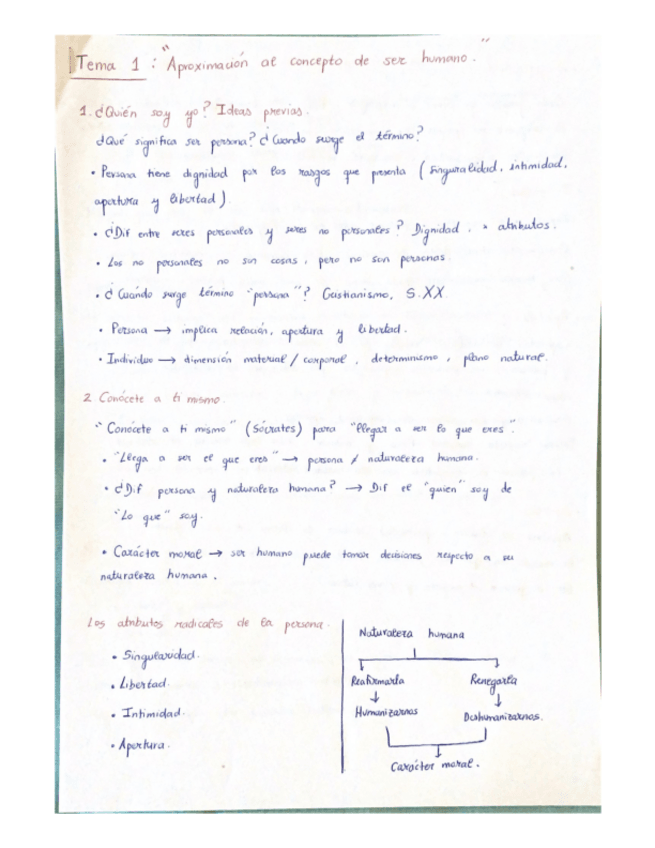 Tema 1 : "Aproximación al concepto de ser humano."
1. ¿Quién soy yo? Ideas previas.
¿Qué significa ser persona? ¿Cuando surge el término?
• Persona tiene dignidad por los rasgos que presenta (singularidad, intimidad,
apertura y libertad).
• ¿Dif entre seres personales y seres no personales? Dignidad. atributos.
• Los no personales no son cosas, pero no son personas.
• ¿Cuándo surge término "persona"? Cristianismo, S.XX.
• Persona → implica relación, apertura y libertad.
• Individuo → dimensión material / corporal, determinismo, plano natural.
2 Conócete a ti mismo.
"Conócete a ti mismo" (Sócrates) para "llegar a ser lo que eres".
• "Llega a ser el que eres" → persona / naturaleza humana.
• ¿Dif persona y naturaleza humana? → Dif el "quien" soy de
"Lo que" soy.
• Carácter moral → ser humano puede tomar decisiones respecto a su
naturaleza humana.
Los atributos radicales de la persona.
• Singularidad.
• Libertad.
• Intimidad.
• Apertura.
Naturaleza humana
Reafirmarla Renegarla
↓ ↓
Humanizarnos Deshumanizarnos.
Carácter moral.